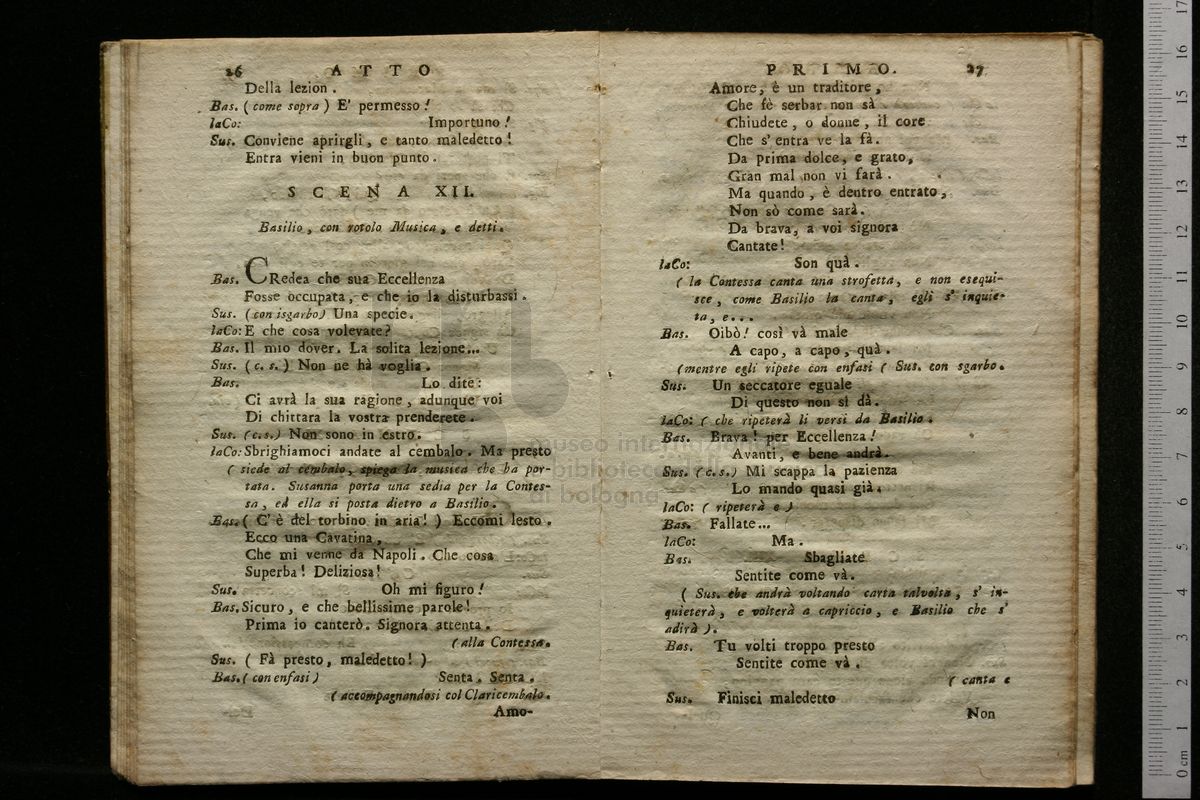 26 ATTO
Della lezion.
Bas. (come sopra) E' permesso!
laCo: Importuno!
Sus. Conviene aprirgli, e tanto maledetto!
Entra vieni in buon punto.
SCENA XII.
Basilio, con rotolo Musica, e detti.
Bas. CRedea che sua Eccellenza
Fosse occupata, e che io la disturbassi.
Sus. (con isgarbo) Una specie.
laCo: E che cosa volevate?
Bas. Il mio dover. La solita lezione...
Sus. (c. s.) Non ne hà voglia.
Bas. Lo dite:
Ci avrà la sua ragione, adunque voi
Di chittara la vostra prenderete.
Sus. (c.s.) Non sono in estro.
laCo: Sbrighiamoci andate al cembalo. Ma presto
(siede al cembalo, spiega la musica che ha por-
tata. Susanna porta una sedia per la Contes-
sa, ed ella si posta dietro a Basilio.
Bas. (C' è del torbino in aria!) Eccomi lesto.
Ecco una Cavatina,
Che mi venne da Napoli. Che cosa
Superba! Deliziosa!
Sus. Oh mi figuro!
Bas. Sicuro, e che bellissime parole!
Prima io canterò. Signora attenta.
(alla Contessa.
Sus. (Fà presto, maledetto!)
Bas. (con enfasi) Senta. Senta.
(accompagnandosi col Claricembalo.
Amo-
PRIMO. 27
Amore, è un traditore,
Che fè serbar non sà
Chiudete, o donne, il core
Che s' entra ve la fà.
Da prima dolce, e grato,
Gran mal non vi farà.
Ma quando, è dentro entrato,
Non sò come sarà.
Da brava, a voi signora
Cantate!
laCo: Son quà.
(la Contessa canta una strofetta, e non esequi-
sce, come Basilio la canta, egli s' inquie-
ta, e...
Bas. Oibò! così và male
A capo, a capo, quà.
(mentre egli ripete con enfasi (Sus. con sgarbo.
Sus. Un seccatore eguale
Di questo non si dà.
laCo: (che ripeterà li versi da Basilio.
Bas. Brava! per Eccellenza!
Avanti, e bene andrà.
Sus. (c.s.) Mi scappa la pazienza
Lo mando quasi già.
laCo: (ripeterà e)
Bas. Fallate...
laCo: Ma.
Bas. Sbagliate
Sentite come và.
(Sus. che andrà voltando carta talvolta, s' in-
quieterà, e volterà a capriccio, e Basilio che s'
adirà).
Bas. Tu volti troppo presto
Sentite come và.
(canta e
Sus. Finisci maledetto
Non